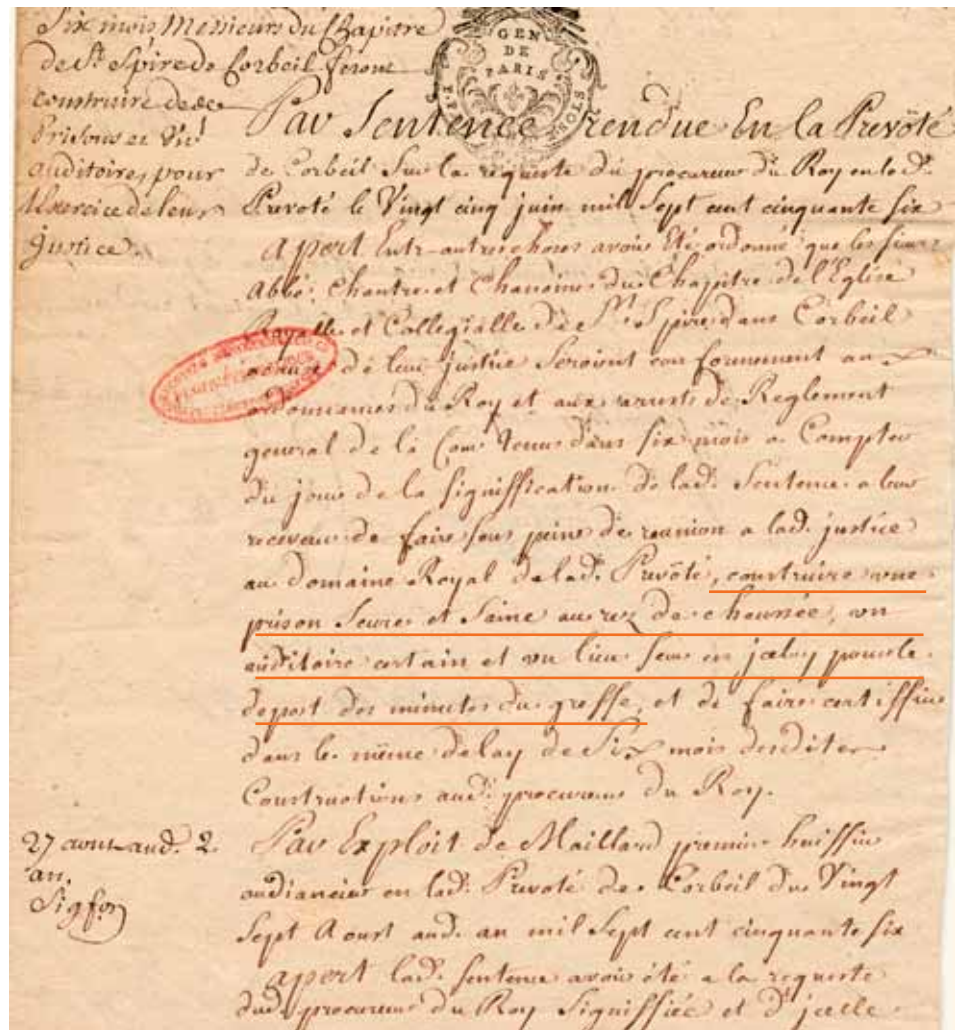 Six mois, Messieurs du Chapitre
de St. Spire de Corbeil feront
construire des
Prisons et Un
auditoire, pour
l'Exercice de leur
Justice.
GEN
DE
PARIS
Par Sentence Rendue En la Prevôté
de Corbeil Sur la requeste du procureur du Roy en lad.
Prevoté le Vingt cinq juin mil Sept cent cinquante six
apert Entr-autres choses avoir Eté ordonné que les sieurs
Abbé, Chantre et Chanoines du Chapitre de l'Eglise
Royalle et Collegialle de St. Spire dans Corbeil
de leur justice Seroient conformement aux
ordonnances du Roy et aux arrests de Reglement
general de la Cour Tenus dans six mois a Compter
du jour de la signiffication de lad. Sentence a leur
receveur de faire sous peine de reunion a lad. justice
au Domaine Royal de lad. Prevôté, construire une
prison Seure et Saine au rez de chaussée, un
auditoire certain et un lieu seur en jceluy pour le
depost des minutes du greffe, et de faire certiffier
dans le même delay de Six mois desdites
Constructions aud. procureur du Roy.
27 aoust aud. 2.
an.
Sigfon
Par Exploit de Maillard premier huissier
audiancier en lad. Prevoté de Corbeil du Vingt
Sept Aoust aud. an mil Sept cent cinquante six
apert lad. sentence avoir été a la requeste
dud. procureur du Roy Signiffiée et d'jcelle